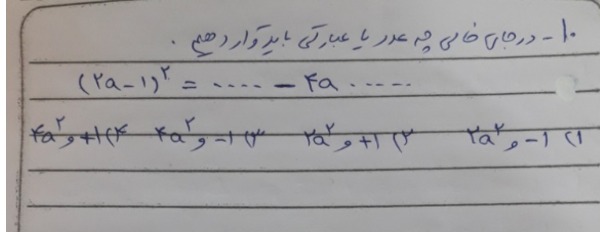 ۱۰- در جای خالی چه عدد یا عبارتی باید قرار دهیم .
(۲a-۱)^۲ = ..... - ۴a ......
۱) -۱ و ۲a^۲ ۲) +۱ و ۲a^۲ ۳) -۱ و ۴a^۲ ۴) +۱ و ۴a^۲